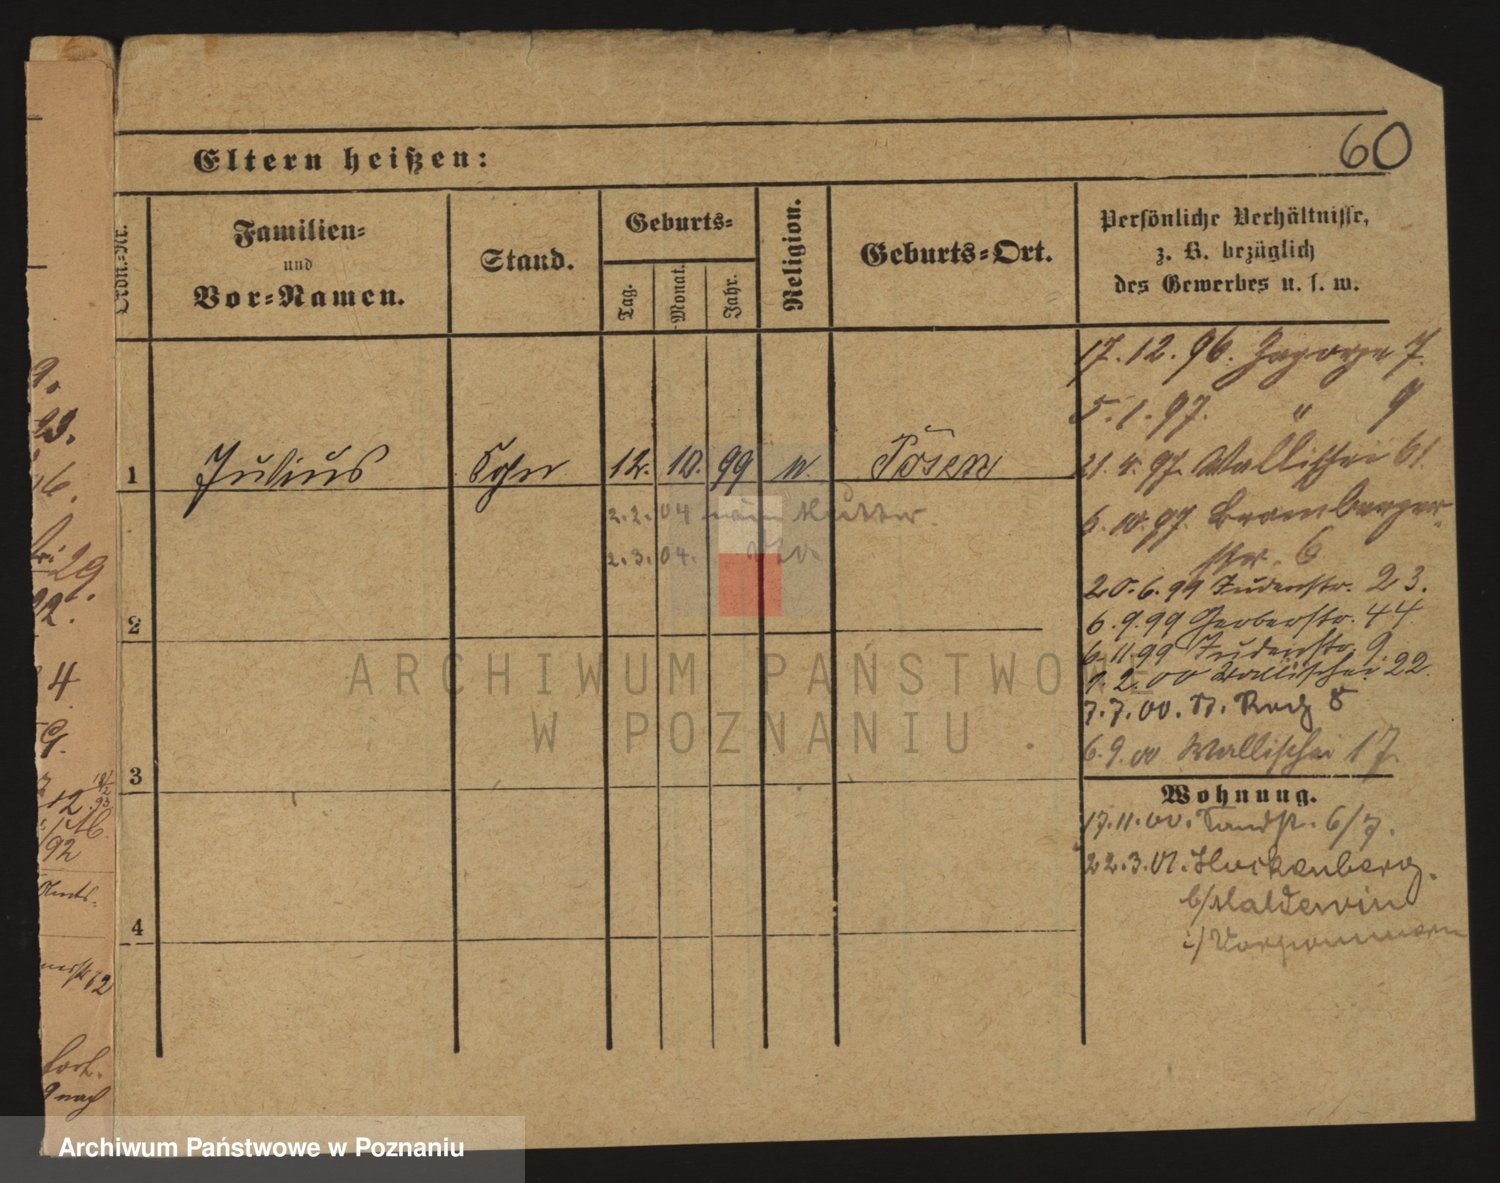 60
Eltern heißen:
Ordn.-Nr.
Familien-
und
Vor-Namen.
Stand.
Geburts-
Tag.
Monat.
Jahr.
Religion.
Geburts-Ort.
Persönliche Verhältnisse,
z. B. bezüglich
des Gewerbes u. s. w.
17. 12. 96. Zagorze 7.
5. 1. 97. " 9
21. 4. 97. Wallischei 61.
1 Julius Sohn 12. 10. 99 Posen
6. 10. 97. Bromberger-
str. 6
2. 2. 04 Mutter.
2. 3. 04.
20. 6. 99 Judenstr. 23.
6. 9. 99 Gerberstr. 44
6. 11. 99 Judenstr. 9.
9. 2. 00 Wallischei 22.
7. 7. 00. 8
6. 9. 00 Wallischei 17.
2
3
4
Wohnung.
17. 11. 00. 6/7.
22. 3. 01.
b/
i/ Vorpommern
9.
93.
16.
29.
92.
4
12
92
Amts-
62
fort.
9 nach
ARCHIWUM PAŃSTWOWE
W POZNANIU
Archiwum Państwowe w Poznaniu